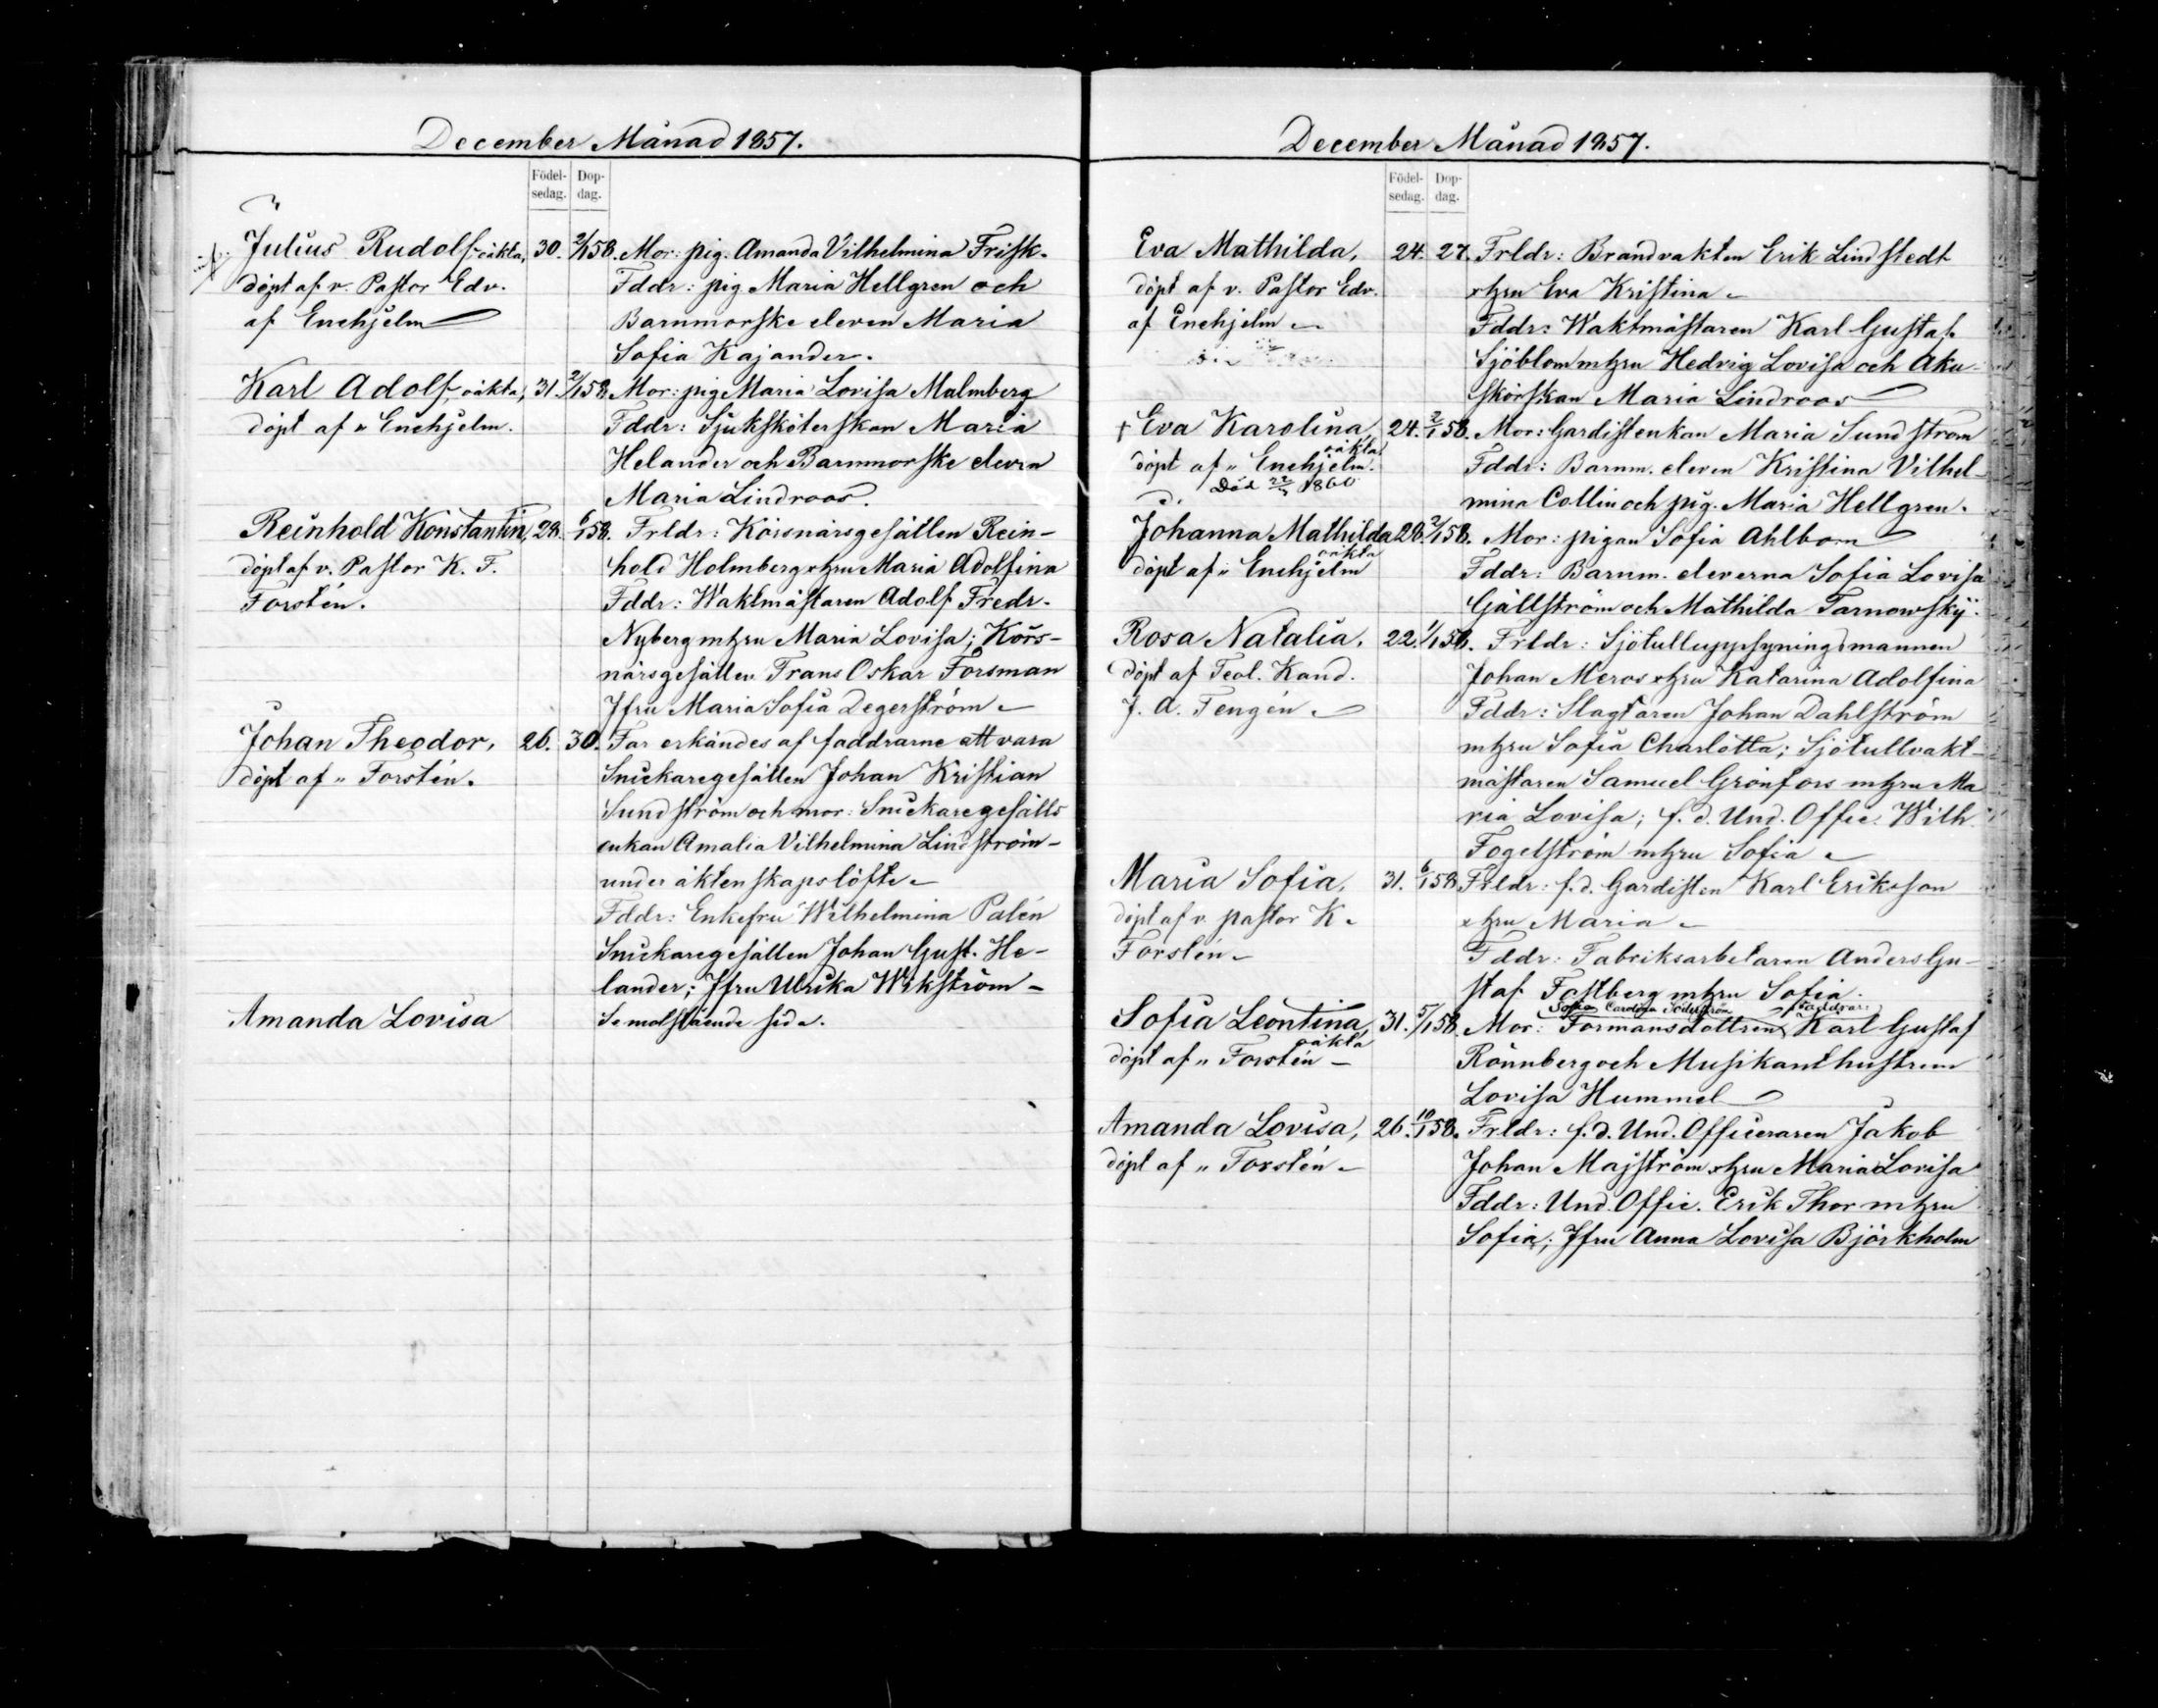 December Månad 1857.
Födel-
sedag.
Dop-
dag.
Julius Rudolf oäkta, 30. 2/1 58. Mor: pig. Amanda Vilhelmina Frisk.
döpt af v. Pastor Edv. Fddr: pig Maria Hellgren och
af Enehjelm Barnmorske eleven Maria
Sofia Kajander.
Karl Adolf oäkta, 31. 2/1 58. Mor: pig Maria Lovisa Malmberg
döpt af " Enehjelm. Fddr: Sjuksköterskan Maria
Helander och Barnmorske eleven
Maria Lindroos.
Reinhold Konstantin, 28. 6/1 58. Frldr: Körsnärsgesällen Rein-
döpt af v. Pastor K. F. hold Holmberg o hru Maria Adolfina
Forstén. Fddr: Waktmästaren Adolf Fredr.
Nyberg m hru Maria Lovisa; Körs-
närsgesällen Frans Oskar Forsman
Jfru Maria Sofia Degerström
Johan Theodor, 26. 30. Far erkändes af faddrarne att vara
döpt af " Forstén. Snickaregesällen Johan Kristian
Sundström och mor: Snickaregesälls
enkan Amalia Vilhelmina Lindström
under äktenskapslöfte
Fddr: Enkefru Wilhelmina Palén
Snickaregesällen Johan Gust. He-
lander; Jfru Ulrika Wikström
Amanda Lovisa Se motstående sida.
December Månad 1857.
Födel-
sedag.
Dop-
dag.
Eva Mathilda, 24. 27. Frldr: Brandvakten Erik Lindstedt
döpt af v. Pastor Edv. o hru Eva Kristina
af Enehjelm Fddr: Waktmästaren Karl Gustaf
Sjöblom m hru Hedvig Lovisa och Aku-
skörskan Maria Lindroos
+ Eva Karolina, 24. 2/1 58. Mor: Gardistenkan Maria Sundström
oäkta
döpt af " Enehjelm. Fddr: Barnm. eleven Kristina Vilhel-
Död 1860 mina Collin och pig. Maria Hellgren.
Johanna Mathilda 28. 2/1 58. Mor: pigan Sofia Ahlbom
oäkta
döpt af " Enehjelm Fddr: Barnm. eleverna Sofia Lovisa
Gällström och Mathilda Tarnowsky.
Rosa Natalia, 22. 1/1 58. Frldr: Sjötulluppsyningsmannen
döpt af Teol. Kand. Johan Meros o hru Katarina Adolfina
J. A. Tengén Fddr: Slagtaren Johan Dahlström
m hru Sofia Charlotta; Sjötullvakt-
mästaren Samuel Grönfors m hru Ma
ria Lovisa; f. d. Und. Offic. Wilh.
Fogelström m hru Sofia
Maria Sofia, 31. 6/1 58. Frldr: f. d. Gardisten Karl Erikson
döpt af v. pastor K. o hru Maria
Forstén Fddr: Fabriksarbetaren Anders Gu-
staf Fastberg m hru Sofia.
Sofia Carolina Söderström faddrar:
Sofia Leontina, 31. 5/1 58. Mor: Formansdottren Karl Gustaf
oäkta
döpt af " Forstén Rönnberg och Musikanthustrun
Lovisa Hummel
Amanda Lovisa, 26. 10/1 58. Frldr: f. d. Und. Officeraren Jakob
döpt af " Forstén Johan Majström o hru Maria Lovisa
Fddr: Und. Offic. Erik Thor m hru
Sofia; Jfru Anna Lovisa Björkholm